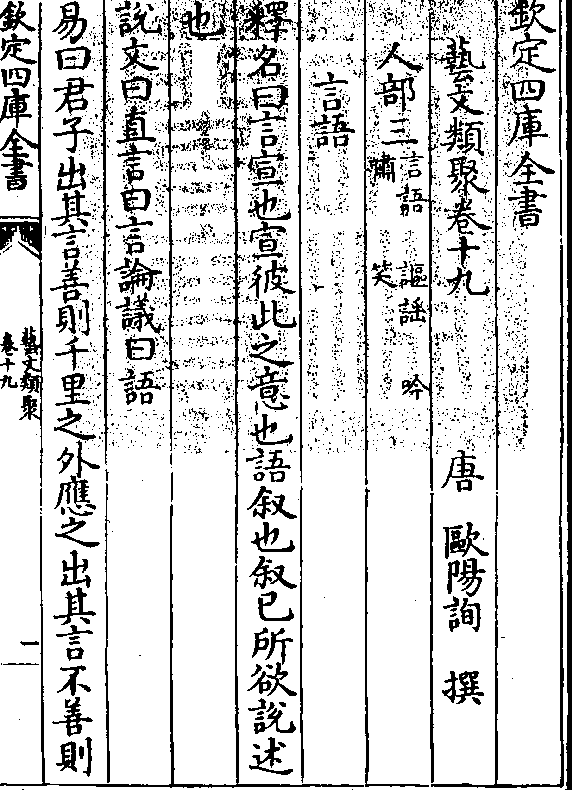 欽定四庫全書
藝文類聚卷十九
唐 歐陽詢 撰
人部三 言語 謳謠 吟
嘯 笑
言語
釋名曰言宣也宣彼此之意也語叙也叙己所欲說述
也
說文曰直言曰言論議曰語
易曰君子出其言善則千里之外應之出其言不善則
欽定四庫全書
藝文類聚
卷十九
一